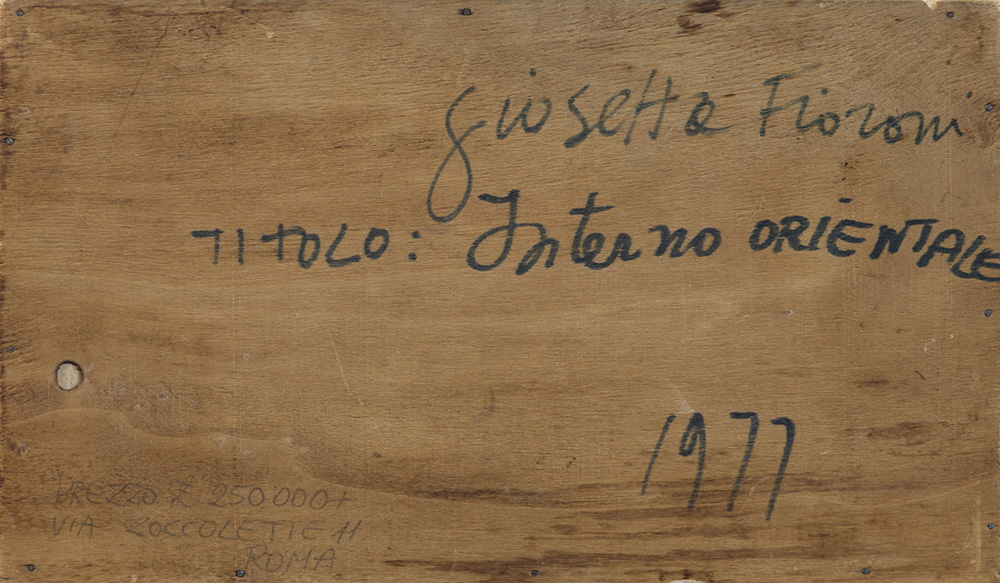 giosetta Fioroni
TITOLO: Interno ORIENTALE
1977
PREZZO £ 250'000+
VIA ZOCCOLETTE 11
ROMA